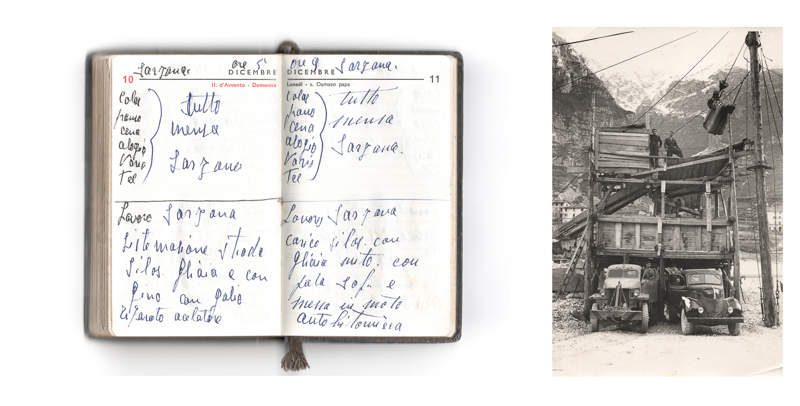 Sarzana. ore 5
10 DICEMBRE
II. d'Avvento - Domenica
Colaz
pranzo
cena
alogio
Varie
Tel
tutto
mensa
Sarzana
Lavoro Sarzana
Sistemazione strada
Silos. Ghiaia e con
Gino con
riparato
ore 9 Sarzana.
DICEMBRE 11
Lunedì - s. Damaso papa
Colaz
pranzo
cena
alogio
Varie
Tel
tutto
mensa
Sarzana.
Lavoro Sarzana
carico silos. con
ghiaia con
pala e
messa in moto
autobitoniera